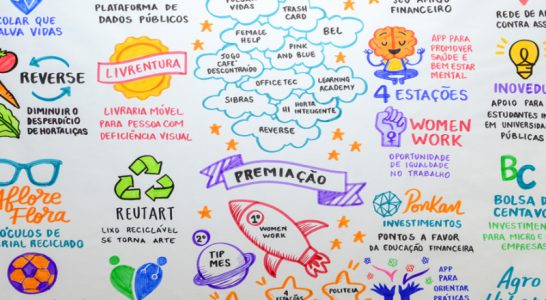 PULSAR VIDAS
COLAR QUE
SALVA VIDAS
PLATAFORMA DE
DADOS PÚBLICOS
LIVRENTURA
LIVRARIA MÓVEL
PARA PESSOA COM
DEFICIÊNCIA VISUAL
REVERSE
DIMINUIR O
DESPERDÍCIO
DE HORTALIÇAS
Aflore
Flora
ÓCULOS DE
MATERIAL RECICLADO
REUTART
LIXO RECICLÁVEL
SE TORNA ARTE
PULSAR
VIDA
TRASH
CARD
FEMALE
HELP
BEL
PINK
AND BLUE
JOGO
CAFÉ
DESCONTRAÍDO
OFFICETEC
LEARNING
ACADEMY
SIBRAS
HORTA
INTELIGENTE
REVERSE
PREMIAÇÃO
1º
WOMEN
WORK
2º
TIP
MES
4
ESTAÇÕES
POLITEIA
SEU APOIO
FINANCEIRO
APP
PARA
PROMOVER
SAÚDE E
BEM ESTAR
MENTAL
4 ESTAÇÕES
WOMEN
WORK
OPORTUNIDADE
DE IGUALDADE
NO TRABALHO
PonKan
INVESTIMENTOS
PONTOS A FAVOR
DA EDUCAÇÃO FINANCEIRA
APP
PARA
ORIENTAR
PRÁTICAS
REDE DE
CONTRA ASS
INOVEDU
APOIO PARA
ESTUDANTES
EM UNIVERSIDA
PÚBLICAS
BC
BOLSA D
CENTAVO
INVESTIMENT
PARA MICRO E
EMPRESAS
Agro